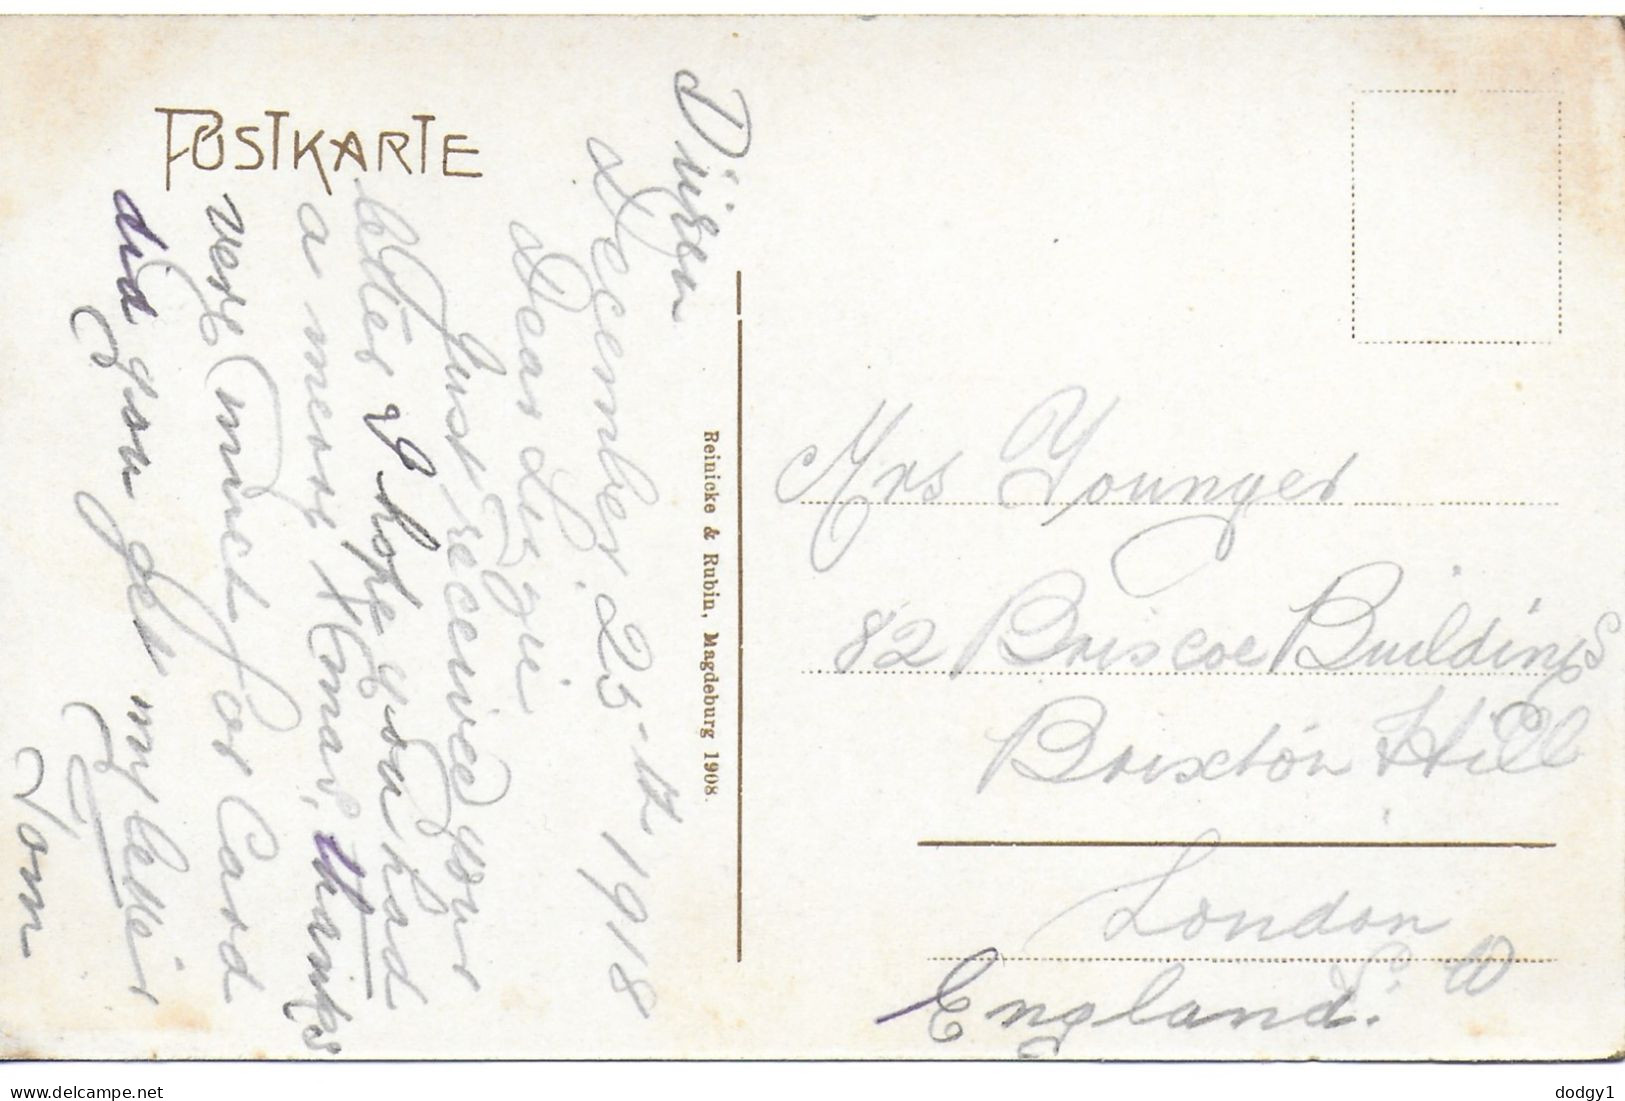 POSTKARTE
Düren
December 25-th 1918
Dear Lizzie
Just received your
letter I hope you had
a merry Xmas, thanks
very much for Card
did you get my letter
Tom
Reinicke & Rubin, Magdeburg 1908.
Mrs Younger
82 Briscoe Buildings
Brixton Hill
London
S. W
England.
delcampe.net
dodgy1